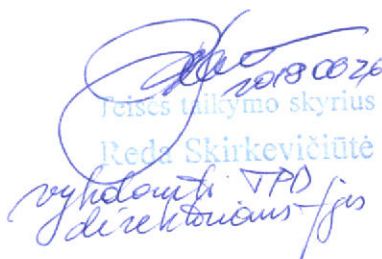 2018 06 26
Teisės taikymo skyrius
Reda Skirkevičiūtė
vykdanti TPD
direktoriaus f-jas